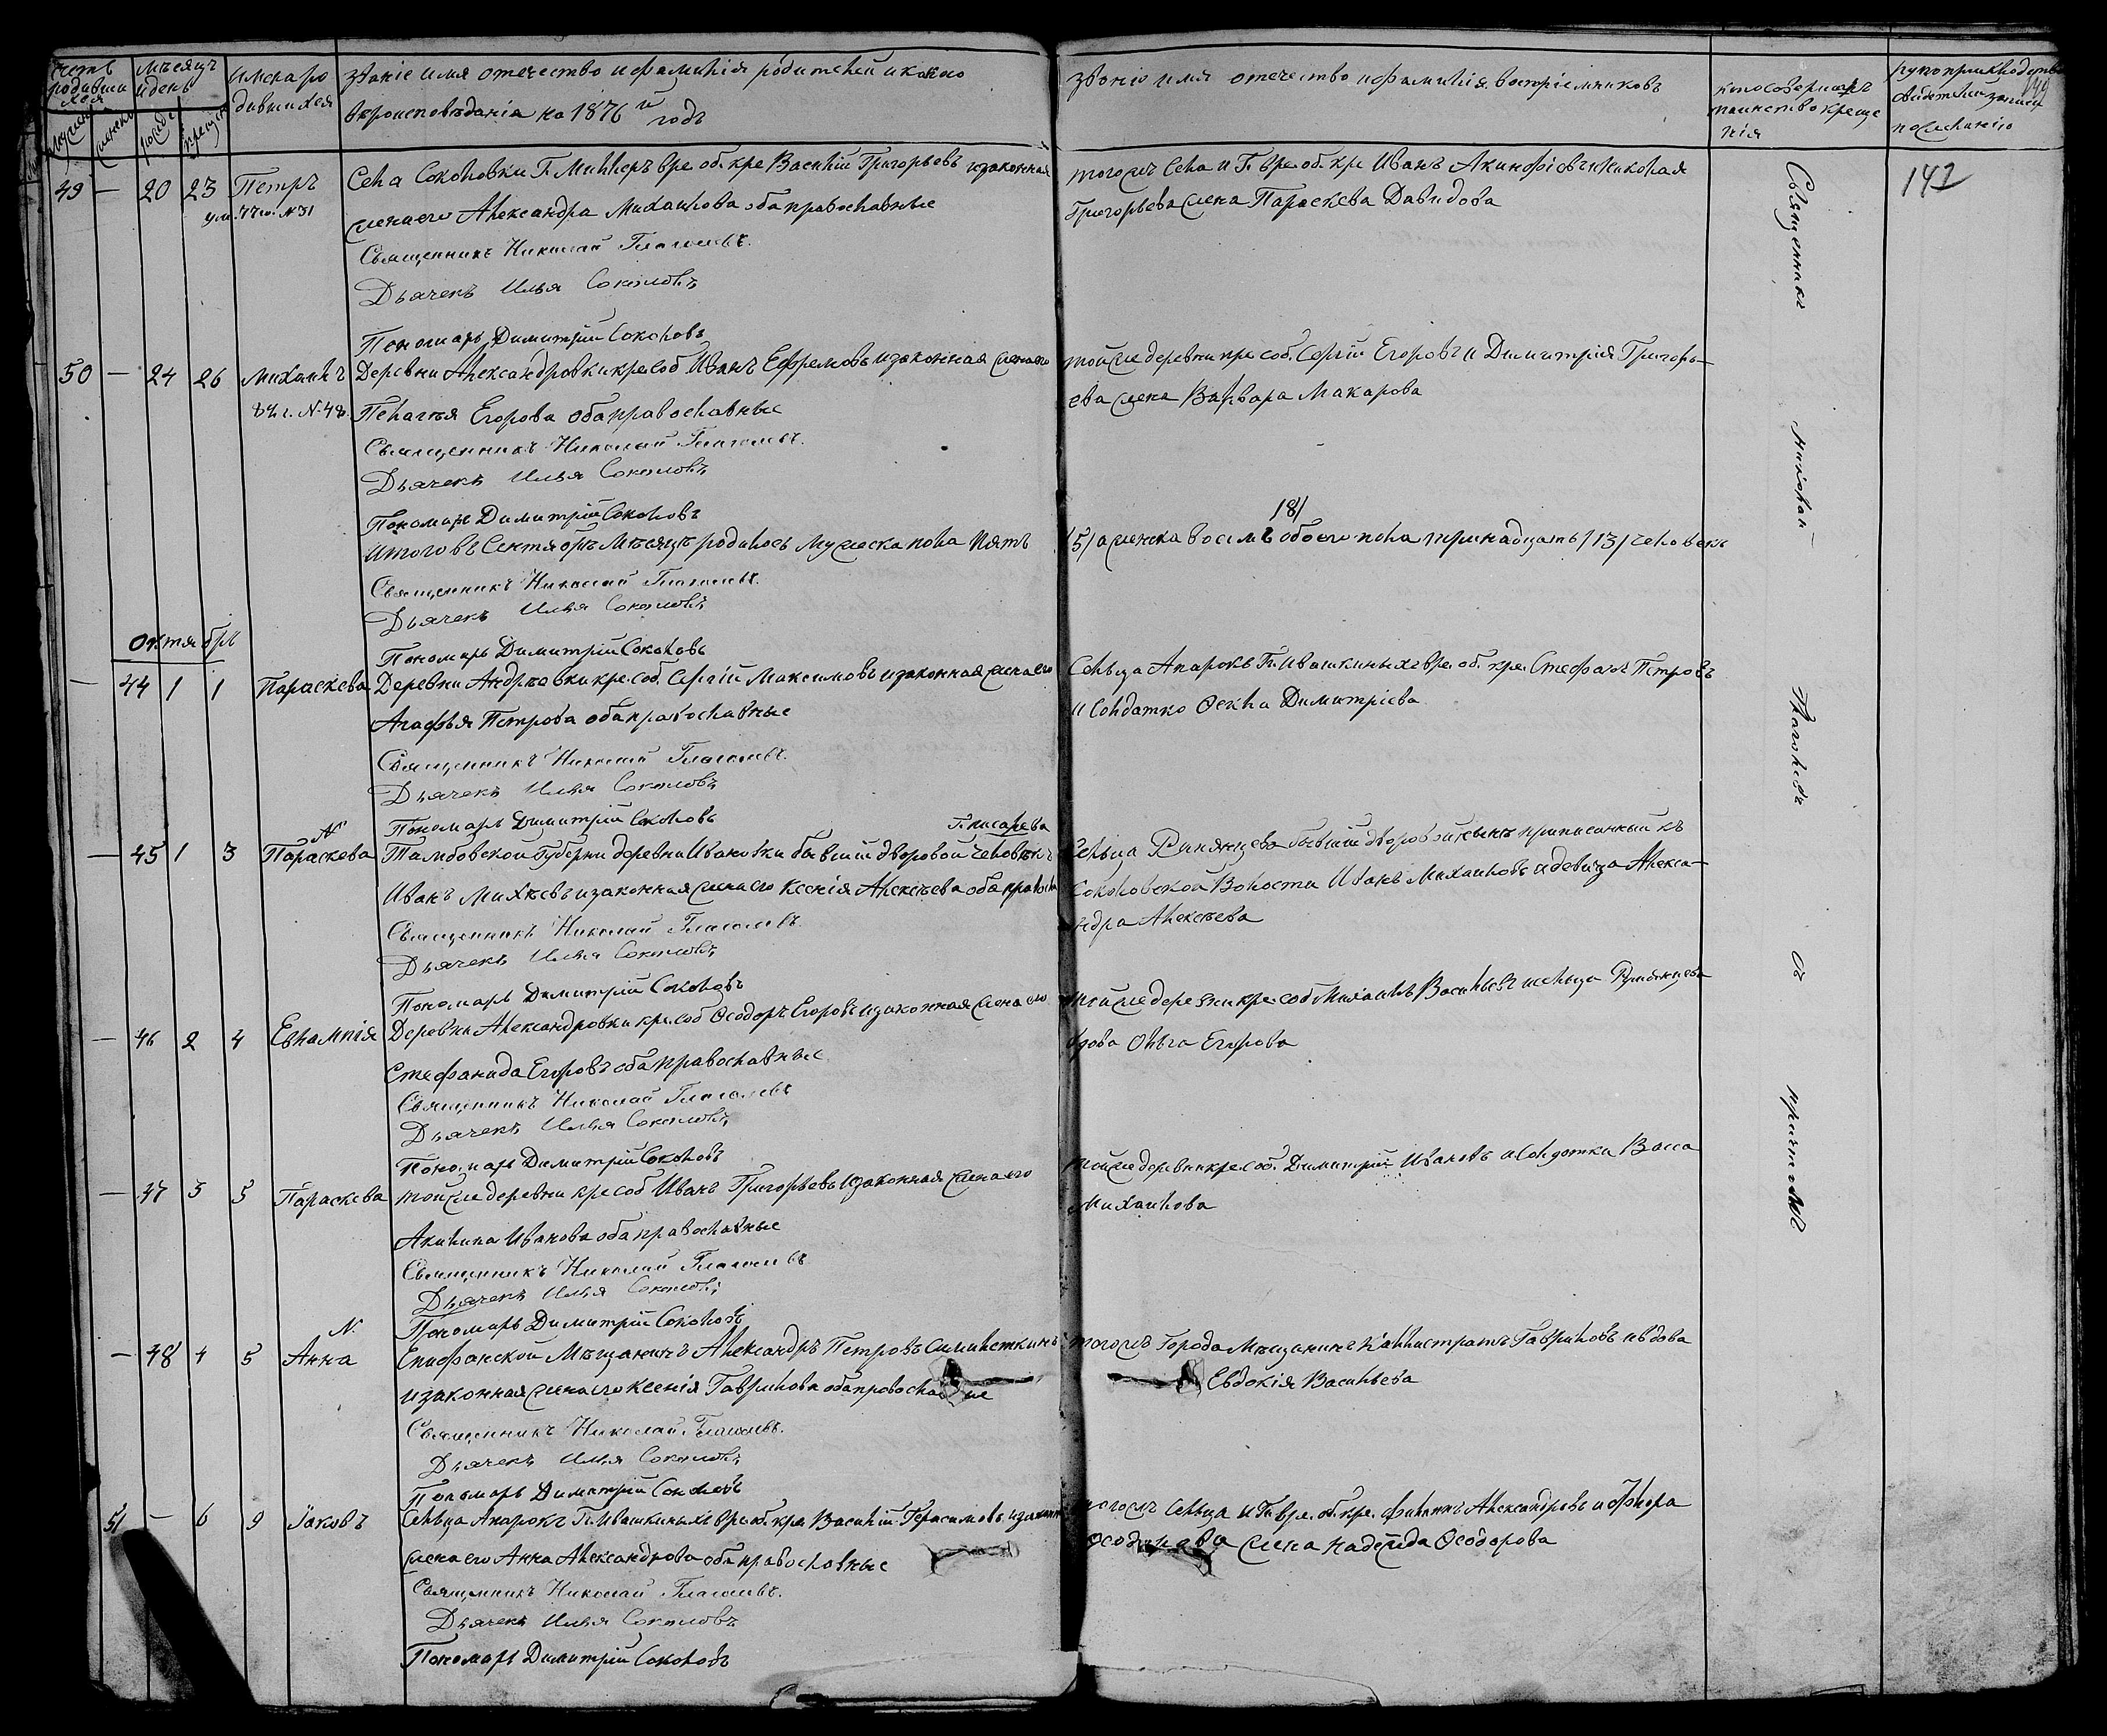 Счетъ родившихся
мужеска
женска
Мѣсяцъ и день
рожде
крещен
Имена родившихся
Званіе имя отечество и фамилія родителей и какого
вѣроисповѣданія на 1876й годъ
Званіе имя отечество и фамилія воспріемниковъ
кто совершалъ
таинство креще
нія
рукоприкладство
свидѣтелей записи
по желанію
142
49 — 20 23 Петръ
ум. 77 г. №31
Села Соколовки Г. Миллеръ вре. об. кре Василій Григорьевъ и законная
жена его Александра Михаилова оба православные
Священникъ Николай Глаголевъ.
Дьячекъ Илья Соколовъ
Пономарь Димитрій Соколовъ
тогожъ Села и Г. вре. об. кре Иванъ Акинфіевъ и Николая
Григорьева жена Параскева Давидова
50 — 24 26 Михаилъ
№ 48.
Деревни Александровки кре. соб Иванъ Ефремовъ и законная жена его
Пелагея Егорова оба православные
Священникъ Николай Глаголевъ.
Дьячекъ Илья Соколовъ
Пономарь Димитрій Соколовъ
тойже деревни кре соб. Сергій Егоровъ и Димитрія Григорь-
ева жена Варвара Макарова
Итого въ Сентябрѣ Мѣсяцѣ родилось мужеска пола пять
/5/ а женска восемь /8/ обоего пола тринадцать /13/ человекъ
Священникъ Николай Глаголевъ.
Дьячекъ Илья Соколовъ
Пономарь Димитрій Соколовъ
Октябрь
— 44 1 1 Параскева
Деревни Андреевки кре. соб. Сергій Максимовъ и законная жена его
Агафья Петрова оба православные
Священникъ Николай Глаголевъ.
Дьячекъ Илья Соколовъ
Пономарь Димитрій Соколовъ
Сельца Апарокъ Г. Ивашкиныхъ вре. об. кре. Стефанъ Петровъ
и Солдатка Фекла Димитріева
— 45 1 3 Параскева
N
Г. писарева
Тамбовской Губерніи деревни Ивановки бывшій дворовой человѣкъ
Иванъ Михѣевъ и законная жена его Ксенія Алексѣева оба правосла
Священникъ Николай Глаголевъ.
Дьячекъ Илья Соколовъ
Пономарь Димитрій Соколовъ
Сельца Румянцева бывшій дворовой приписанный къ
Соколовской Волости Иванъ Михаиловъ и девица Алекса-
ндра Алексѣева
— 46 2 4 Евлампія
Деревни Александровки кре. соб Феодоръ Егоровъ и законная жена его
Стефанида Егорова оба православные
Священникъ Николай Глаголевъ
Дьячекъ Илья Соколовъ
Пономарь Димитрій Соколовъ
тойже деревни кре. соб Михаилъ Васильевъ и сельца Румянцева
вдова Ольга Егорова
— 47 3 5 Параскева
тойже деревни кре соб Иванъ Григорьевъ и законная жена его
Акилина Иванова оба православные
Священникъ Николай Глаголевъ
Дьячекъ Илья Соколовъ
Пономарь Димитрій Соколовъ
тойже деревни кре. соб. Димитрій Ивановъ и Солдатка Васса
Михаилова
— 48 4 5 Анна
N.
Епифанской Мѣщанинъ Александръ Петровъ
и законная жена его Ксенія Гаврилова оба православные
Священникъ Николай Глаголевъ.
Дьячекъ Илья Соколовъ
Пономарь Димитрій Соколовъ
тогожъ Города Мѣщанинъ Каллистратъ Гавриловъ и вдова
Евдокія Васильева
51 — 6 9 Іаковъ
Сельца Апарокъ Г. Ивашкиныхъ вре. об. кре Василій Герасимовъ и законная
жена его Анна Александрова оба православные
Священникъ Николай Глаголевъ.
Дьячекъ Илья Соколовъ
Пономарь Димитрій Соколовъ
тогожъ сельца и Г. вре. об. кре. Филипъ Александровъ и Флора
жена Надежда Феодорова
Священникъ Николай Глаголевъ съ причтомъ